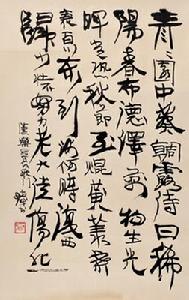 青々園中葵朝露待日晞
陽春布德澤萬物生光
暉常恐秋節至焜黃華葉
衰百川東到海何時復西
歸少壯不努力老大徒傷悲